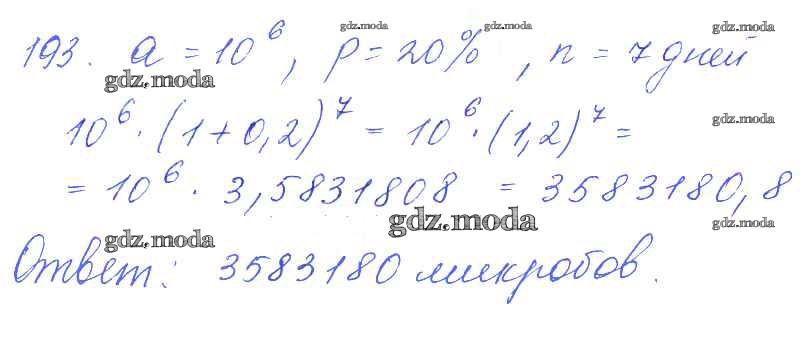 gdz.moda gdz.moda gdz.moda
193. a = 10^6, p = 20%, n = 7 дней
gdz.moda
10^6 · (1 + 0,2)^7 = 10^6 · (1,2)^7 =
gdz.moda
= 10^6 · 3,5831808 = 3583180,8
gdz.moda gdz.moda gdz.moda
Ответ: 3583180 микробов.